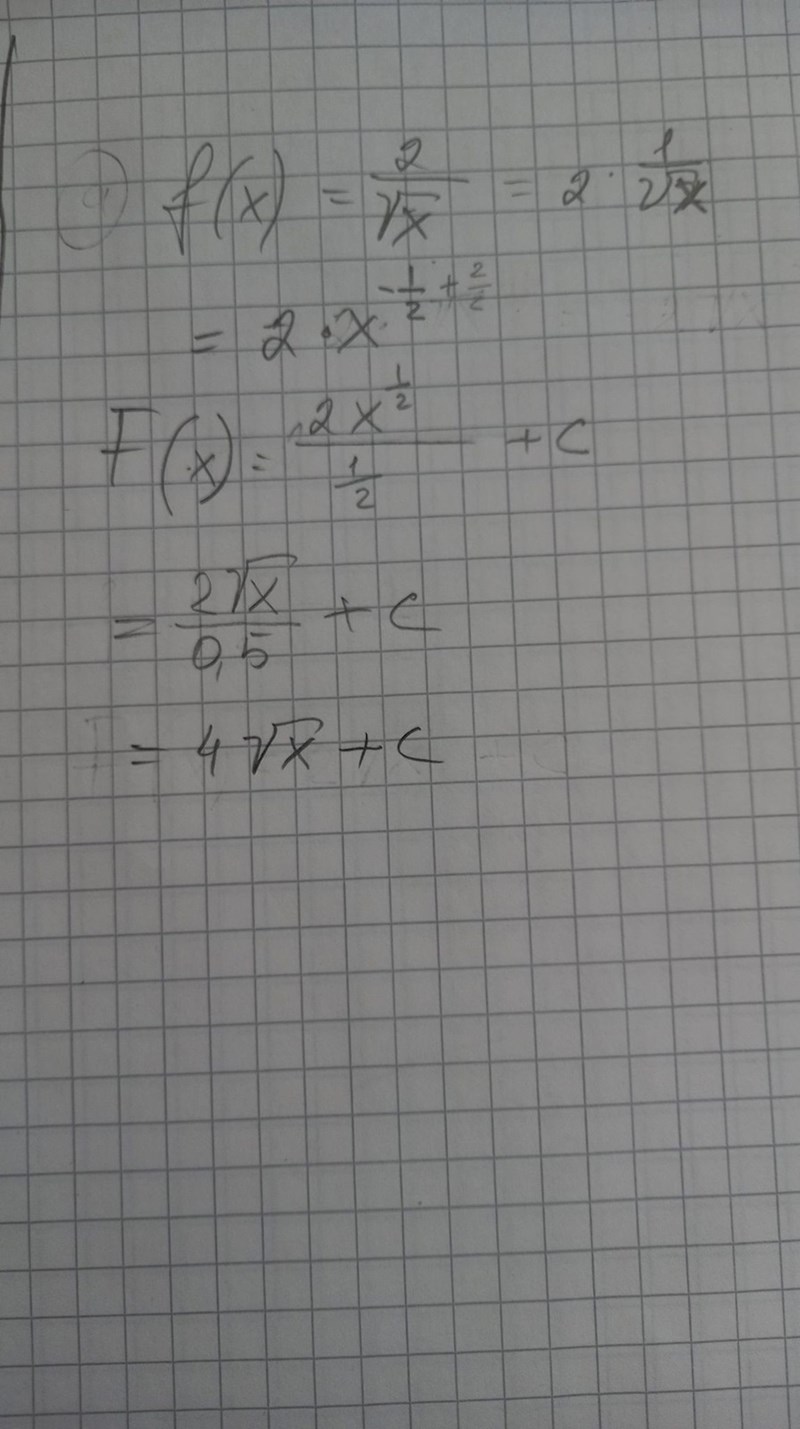 f(x) = 2/√x = 2 · 1/√x
= 2 · x^(-1/2 + 2/2)
F(x) = 2x^(1/2) / (1/2) + C
= 2√x / 0,5 + C
= 4√x + C